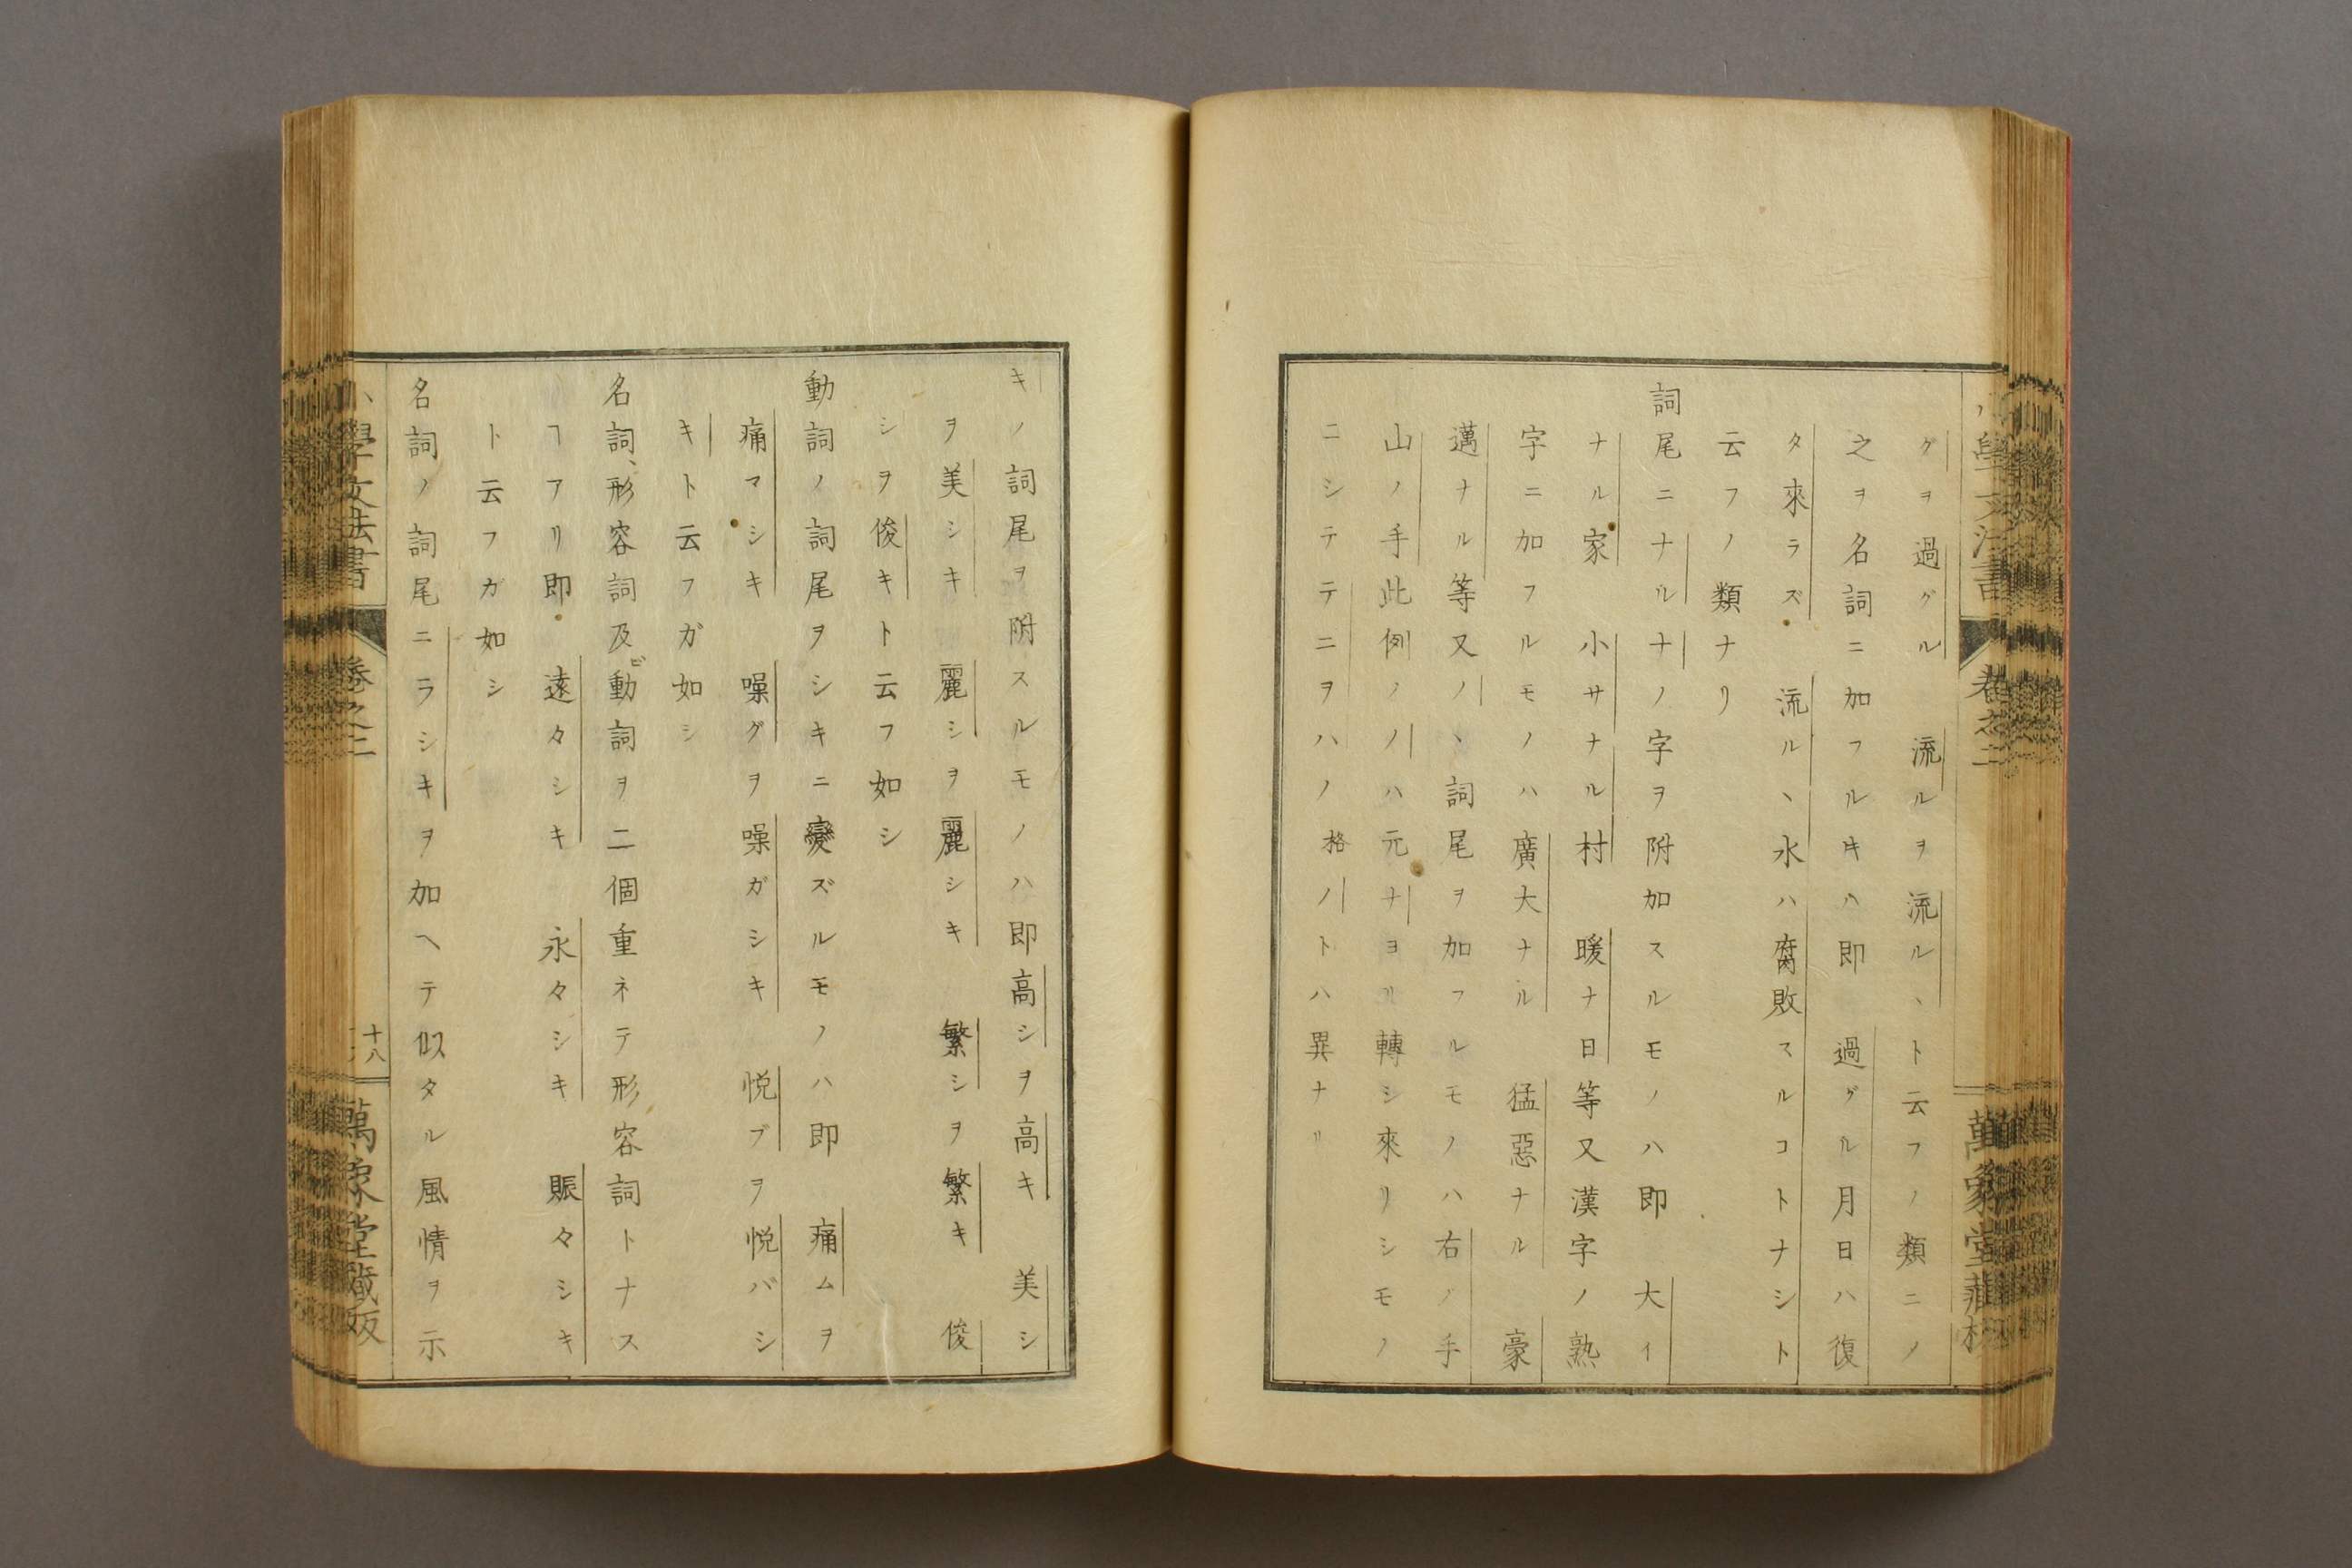 小學文法書 卷之二 萬象堂藏板
グヲ過グル 流ルヲ流ルヽト云フノ類ニノ
之ヲ名詞ニ加フルキハ即 過グル月日ハ復
タ來ラズ 流ルヽ水ハ腐敗スルコトナシト
云フノ類ナリ
詞尾ニナルナノ字ヲ附加スルモノハ即 大イ
ナル家 小サナル村 暖ナ日等又漢字ノ熟
字ニ加フルモノハ廣大ナル 猛惡ナル 豪
邁ナル等又ノヽ詞尾ヲ加フルモノハ右ノ手
山ノ手此例ノノハ元ナヨリ轉シ來リシモノ
ニシテテニヲハノ格ノトハ異ナリ
キノ詞尾ヲ附スルモノハ即高シヲ高キ 美シ
ヲ美シキ 麗シヲ麗シキ 繁シヲ繁キ 俊
シヲ俊キト云フ如シ
動詞ノ詞尾ヲシキニ變ズルモノハ即 痛ムヲ
痛マシキ 噪グヲ噪ガシキ 悦ブヲ悦バシ
キト云フガ如シ
名詞、形容詞及ビ動詞ヲ二個重ネテ形容詞トナス
ヿアリ即 遠々シキ 永々シキ 賑々シキ
ト云フガ如シ
名詞ノ詞尾ニラシキヲ加ヘテ似タル風情ヲ示
小學文法書 卷之二 十八 萬象堂藏版